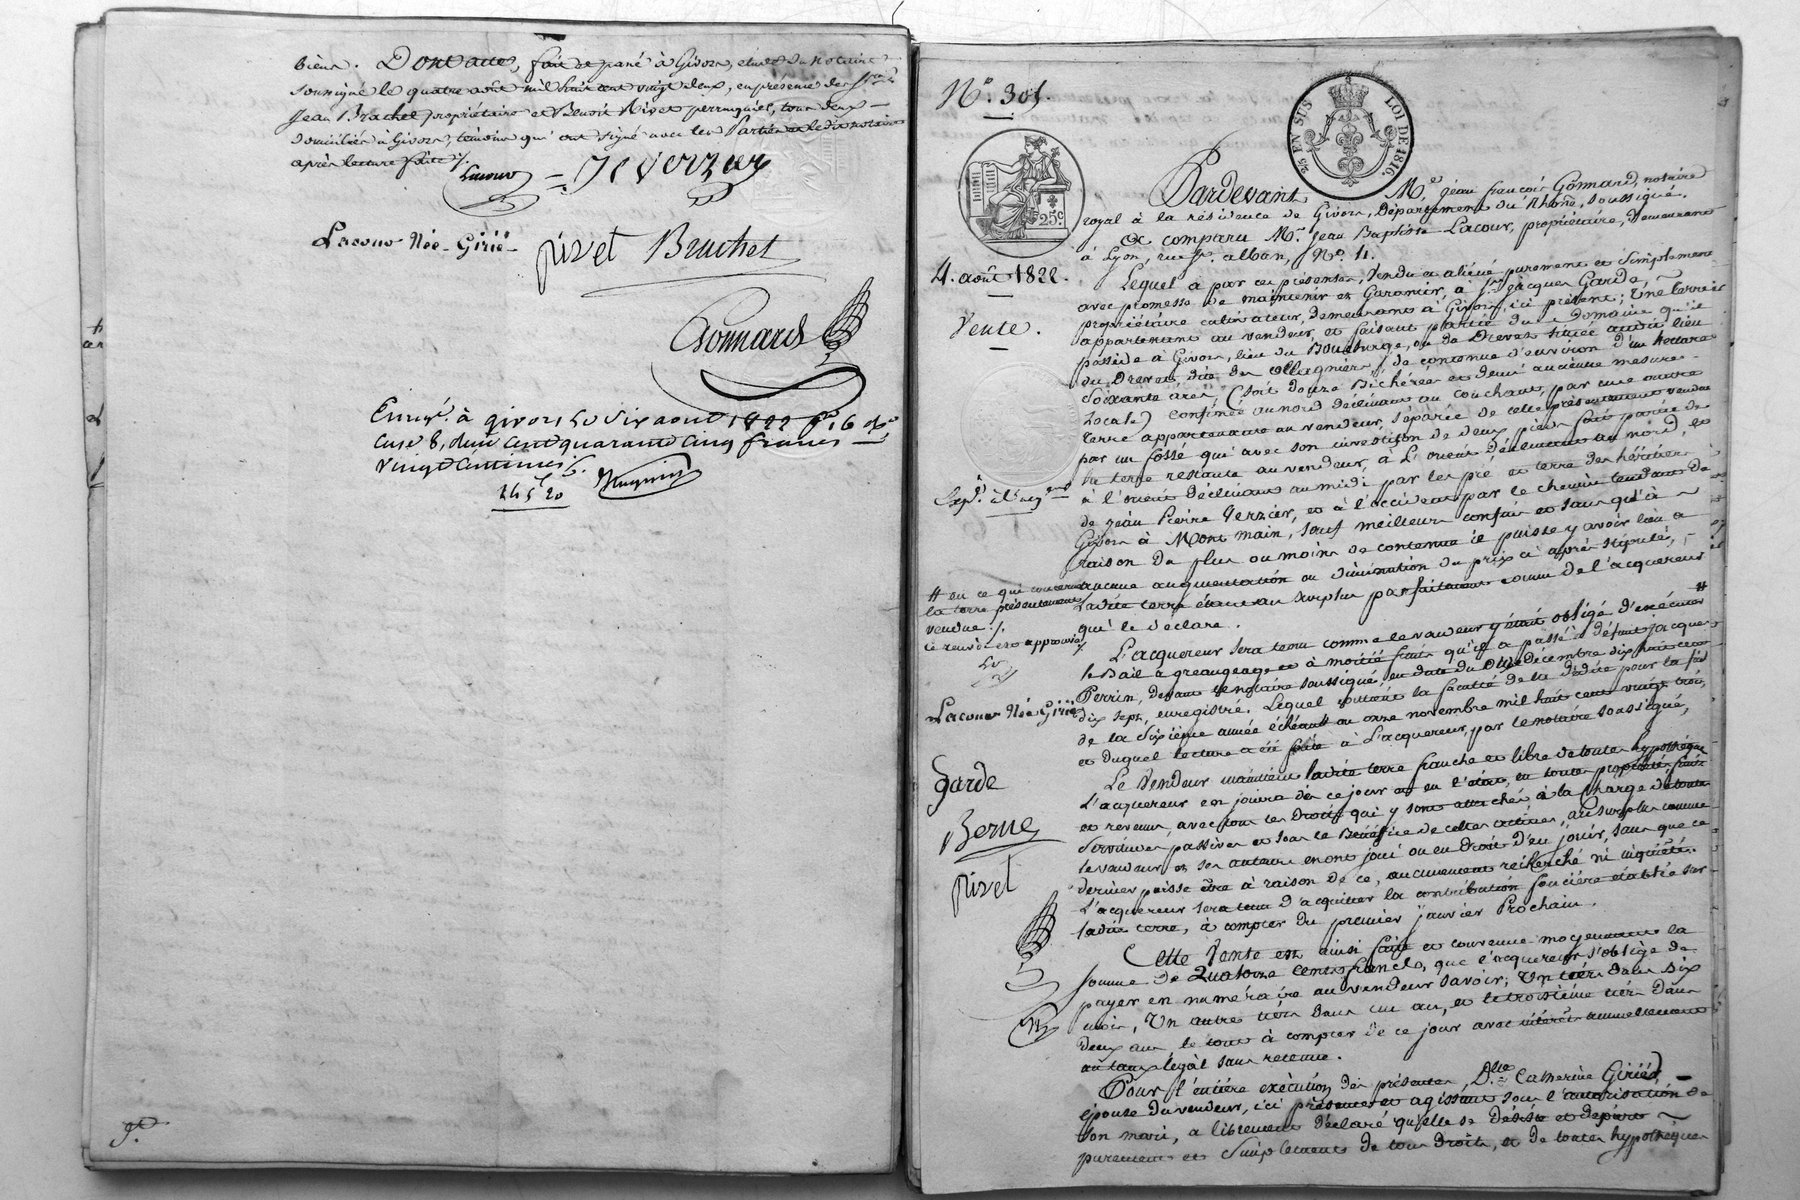 bien. Dont acte, fait et passé à Givors, étude du notaire
soussigné le quatre août mil huit cent vingt deux, en présence des Srs
Jean Brachet propriétaire et Benoit Rivet perruquier, tous deux
domiciliés à Givors, témoins qui ont signé avec les Parties et le dit notaire
après lecture faite ./.
Lacour = JP Verzier
Lacour Née Girié
rivet Brachet
Gonnard
Enregé à givors le six aout 1822 fo 6 Ro
case 8, deux cent quarante cinq francs
vingt centimes
245 f 20
No. 301.
25 EN SUS
LOI DE 1816.
25c
4. août 1822.
Vente.
Expd à l'acqr
# en ce qui concerne
la terre présentement
vendue ./.
ce renvoi est approuvé
Lacour Née Girié
garde
Berne
rivet
Pardevant Me. Jean françois Gonnard, notaire
royal à la résidence de Givors, Département du Rhône, soussigné.
A comparu Mr. Jean Baptiste Lacour, propriétaire, demeurant
à Lyon, rue St. alban, No. 4.
Lequel a par ces présentes, Vendu et aliéné purement et simplement
avec promesse de maintenir et Garantir, à Sr. Jacques Garde,
propriétaire cultivateur, demeurant à Givors, ici présent; Une terre
appartenant au vendeur, et faisant partie du Domaine qu'il
possède à Givors, lieu du Bouchage, ou de Drevet située audit lieu
du Drevet dite des Ollagniers, de contenue d'environ d'un hectare
soixante ares, (soit douze Bichérées et demi ancienne mesure
Locale) confinée au nord déclinant au couchant, par une autre
terre appartenant au vendeur, séparée de celle présentement vendue
par un fossé qui avec son investison de deux pieds fait partie de
la terre restante au vendeur, à L'orient déclinant au nord, et
à l'orient déclinant au midi par les pré et terre des héritiers
de Jean Pierre Verzier, et à l'occident par le chemin tendant de
Givors à Mont main, sauf meilleurs confins et sans qu'à
raison du plus ou moins de contenue il puisse y avoir lieu à
aucune augmentation ou diminution du prix ci après stipulé,
Ladite terre étant au surplus parfaitement connue de l'acquereur
qui le déclare.
L'acquereur sera tenu comme le vendeur y était obligé d'exécuter #
le Bail à grangeage et à moitié fruits qu'il a passé à défunt Jacques
Perrin, devant le notaire soussigné, en date du Décembre dix huit cent
dix sept, enregistré. Lequel contient la faculté de la dédite pour la fin
de la sixième année échéant au onze novembre mil huit cent vingt trois,
et duquel lecture a été faite à L'acquereur, par le notaire soussigné,
Le Vendeur maintient ladite terre franche et libre de toutes hypothèques
L'acquereur en jouira dès ce jour et en l'état, en toutes propriétés fruits
et revenus, avec tous les droits qui y sont attachés, à la charge de toutes
servitudes passives et sous le Bénéfice de celles actives, au surplus comme
le vendeur et ses auteurs en ont joui ou eu droit d'en jouir, sans que ce
dernier puisse être à raison de ce, aucunement recherché ni inquiété.
L'acquereur sera tenu d'acquitter la contribution foncière établie sur
ladite terre, à compter du premier Janvier Prochain.
Cette Vente est ainsi faite et convenue moyennant la
somme de Quatorze cents francs, que l'acquereur s'oblige de
payer en numéraire au vendeur savoir; Un tiers dans six
mois, Un autre tiers dans un an, et le troisième tiers dans
deux ans le tout à compter de ce jour avec intérêts annuellement
au taux légal sans retenue.
Pour l'entière exécution des présentes, Dlle Catherine Girié,
épouse du vendeur, ici présente et agissant sous l'autorisation de
son mari, a librement déclaré qu'elle se désiste et départ
purement et simplement de tous droits, et de toutes hypothèques